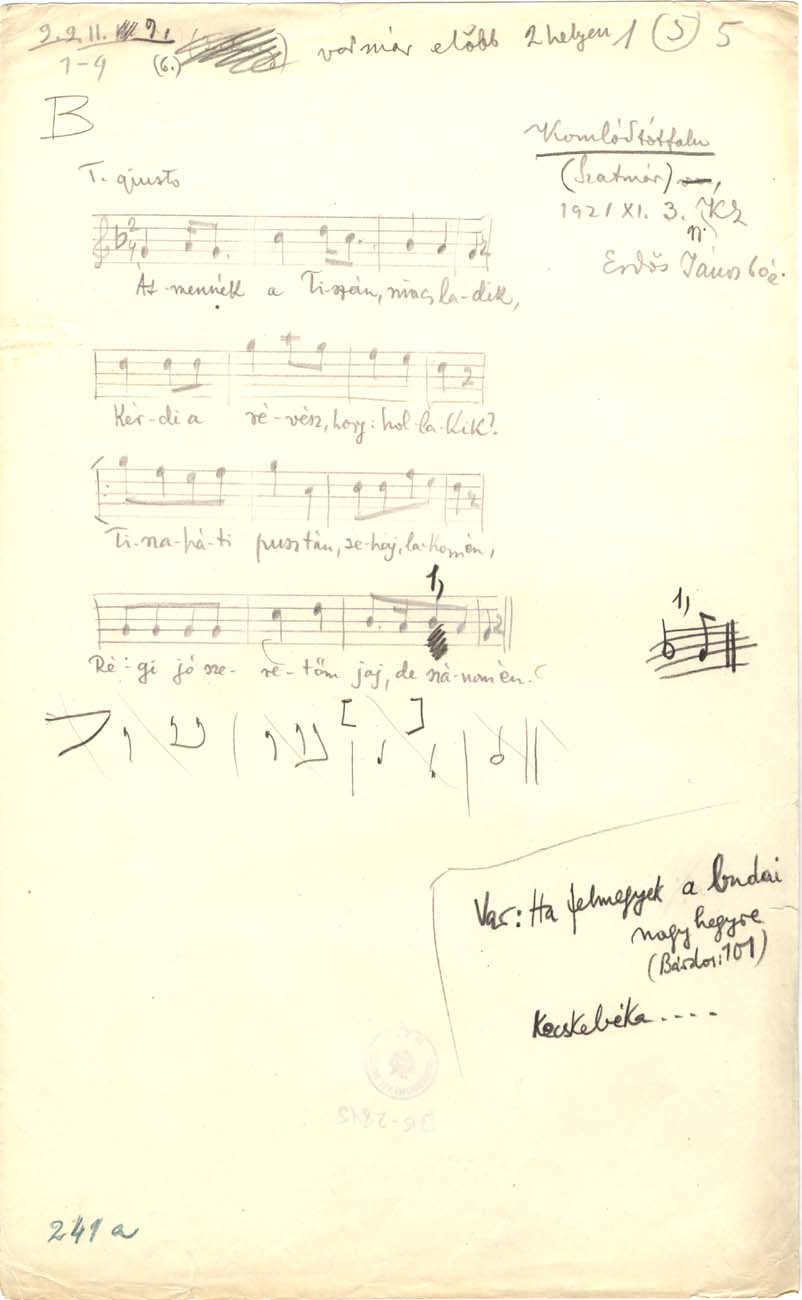 9. 9. 11. 9. volt már előbb 2 helyen 1 (5) 5
1-9 (6.)
B
Komlódtótfalu
(Szatmár)
1921 XI. 3. KZ
n.
Erdős János
T. giusto
Át-mennék a Ti-szán, nincs la-dik,
Kér-di a ré-vész, hogy: hol la-kik?
Ti-sza-há-ti pusztán, ze-haj, la-komén,
1,
Ré-gi jó sze-re-töm jaj, de szá-nom én.
1,
Var: Ha felmegyek a budai
nagy hegyre
(Bárdos: 101)
Kecskebéka.....
241 a